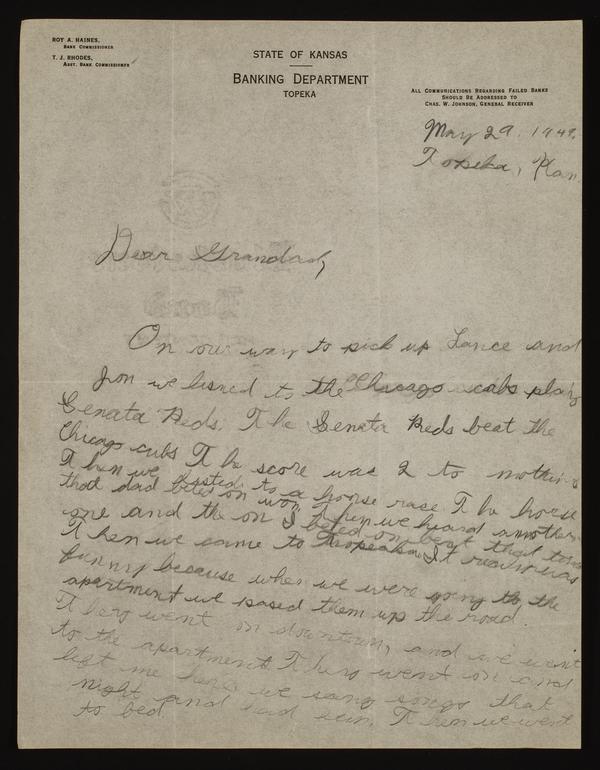 ROY A. HAINES,
BANK COMMISSIONER
T. J. RHODES,
ASST. BANK COMMISSIONER
STATE OF KANSAS
BANKING DEPARTMENT
TOPEKA
ALL COMMUNICATIONS REGARDING FAILED BANKS
SHOULD BE ADDRESSED TO
CHAS. W. JOHNSON, GENERAL RECEIVER
May 29, 1949.
Topeka, Kan.
Dear Grandad,
On our way to pick up Lance and
Jon we lisned to the Chicago cabs play
Senata Reds. The Senata Reds beat the
Chicago cubs The score was 2 to nothing
Then we to a horse rase The horse
that dad beted on won Then we heard another
one and the on I beted on beat that time
Then we came to It was
funny because when we were going to the
apartment we pased them up the road.
They went on downtown, and we went
to the apartment. They went on and
left me here we sang songs that
night and had fun. Then we went
to bed